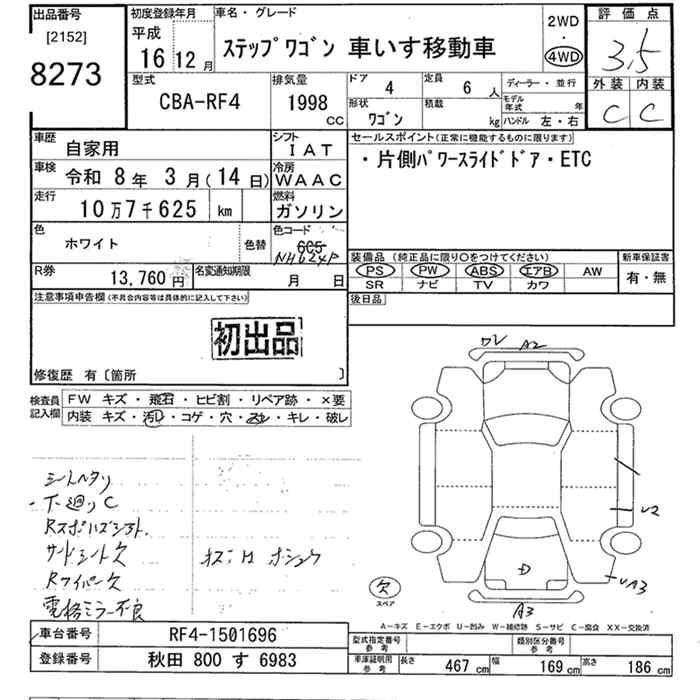 出品番号
[2152]
8273
初度登録年月
平成
16 12月
車名・グレード
ステップワゴン 車いす移動車
2WD
・
4WD
評価点
3.5
型式
CBA-RF4
排気量
1998 CC
ドア
4
定員
6 人
ディーラー・並行
形状
ワゴン
積載
kg
モデル年式 年
ハンドル 左・右
外装 内装
C C
車歴
自家用
シフト
IAT
車検
令和 8年 3月(14日)
冷房
WAAC
走行
10万7千625 km
燃料
ガソリン
色
ホワイト
色替
色コード
NH624P
R券
13,760円
名変通知期限
月 日
セールスポイント(正常に機能するものに限ります)
・片側パワースライドドア・ETC
装備品(純正品に限り〇をつけてください)
PS PW ABS エアB AW
SR ナビ TV カワ
新車保証書
有・無
後日品
注意事項申告欄(不具合内容等は具体的に記入して下さい)
初出品
修復歴 有〔箇所 〕
検査員記入欄
FW キズ・飛石・ヒビ割・リペア跡・×要
内装 キズ・汚レ・コゲ・穴・スレ・キレ・破レ
シートヘタリ
・下廻りC
サードシート欠
Rワイパー欠
電格ミラー不良
A2
U2
D
UA3
A3
欠
スペア
A-キズ E-エクボ U-凹み W-補修跡 S-サビ C-腐食 XX-交換済
車台番号
RF4-1501696
登録番号
秋田 800 す 6983
型式指定番号
参考
類別区分番号
参考
車庫証明用
参考
長さ 467 cm 幅 169 cm 高さ 186 cm